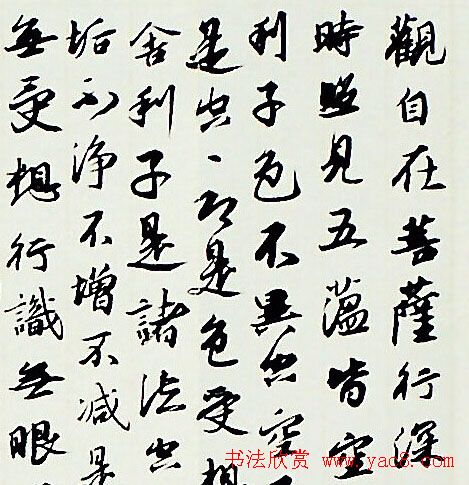 觀自在菩薩行深
時照見五蘊皆空
利子色不異空空
是空、即是色受想
舍利子是諸法空
垢不淨不增不減是
無受想行識無眼
书法欣赏 www.yac8.com